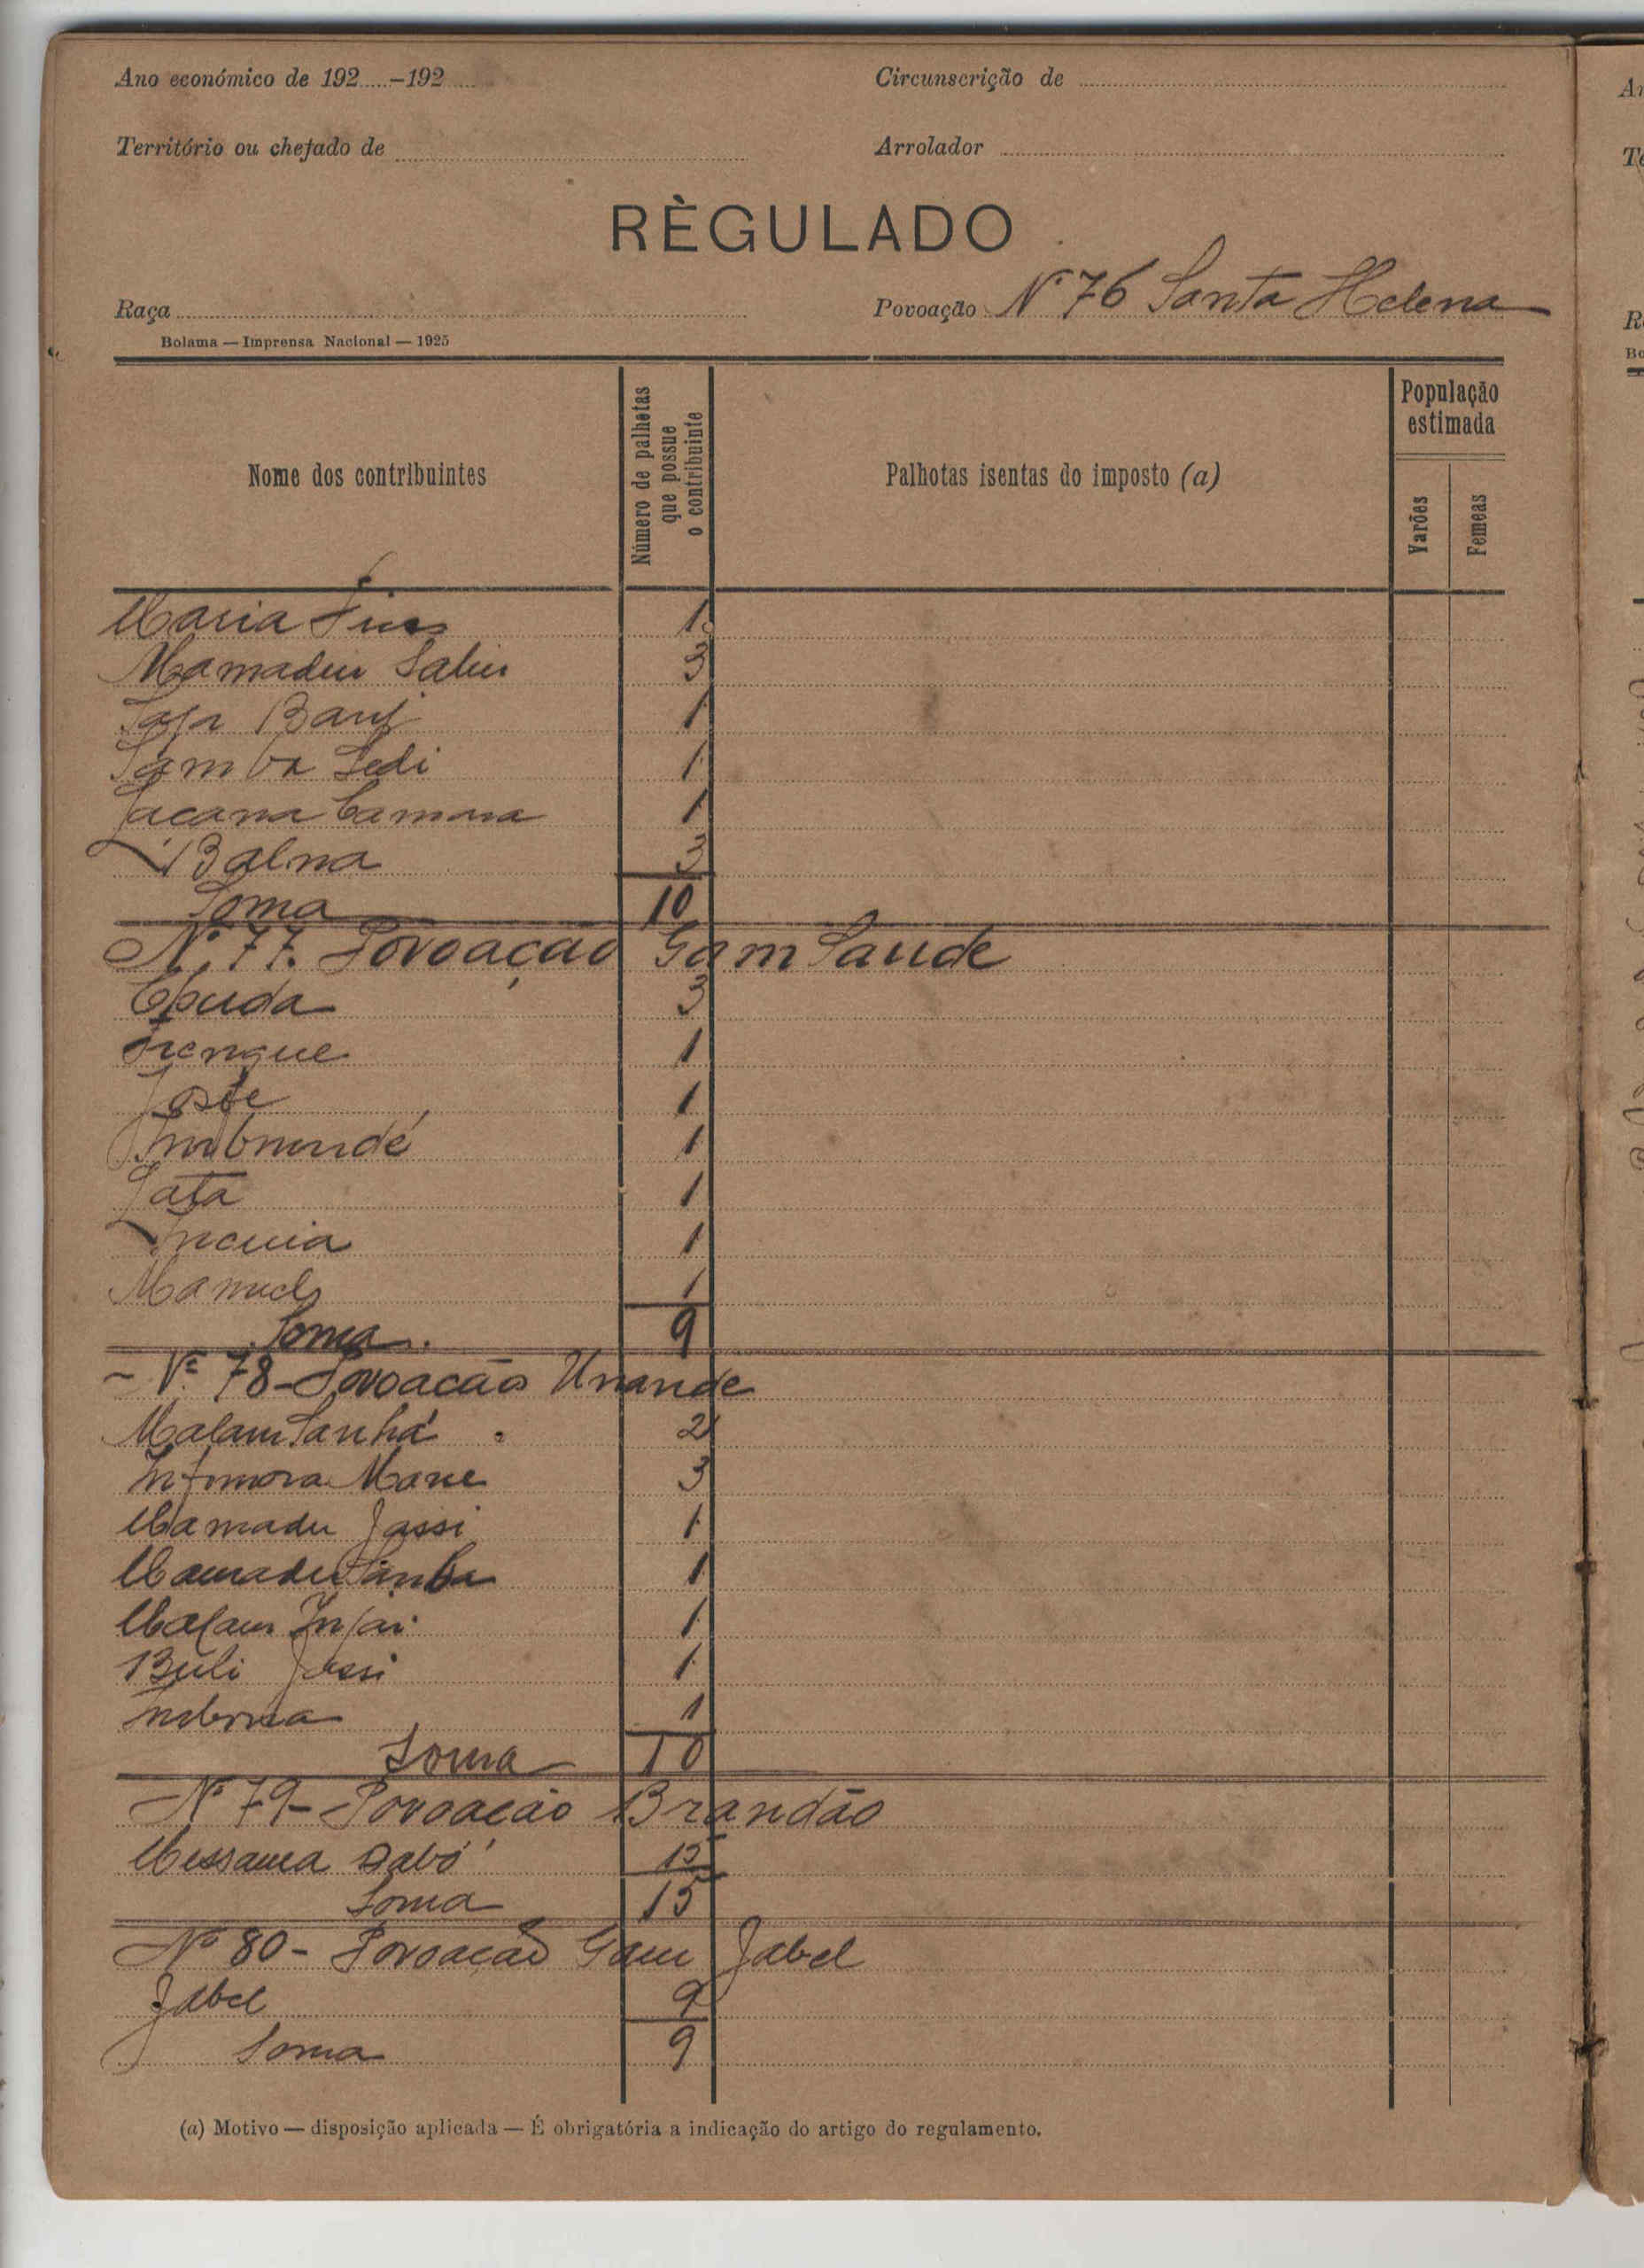 Ano económico de 192.....-192.....
Circunscrição de
Território ou chefado de
Arrolador
RÈGULADO
Raça
Povoação Nº 76 Santa Helena
Bolama — Imprensa Nacional — 1925
Nome dos contribuintes
Número de palhotas que possue o contribuinte
Palhotas isentas do imposto (a)
População estimada
Varões
Femeas
Maria 1
Mamadu Saliu 3
1
Samba Sedi 1
Lacana Camara 1
Balna 3
Soma 10
Nº 77. Povoação Gam Saude
3
1
1
1
Lata 1
1
Manuel 1
Soma 9
Nº 78 - Povoação Unande
Malam Sanhá 2
Infomora Mane 3
Mamadu Jassi 1
Mamadu Samba 1
Malam Injai 1
Buli Jassi 1
1
Soma 10
Nº 79 - Povoação Brandão
Messama Dabó 15
Soma 15
Nº 80 - Povoação Gam Jabel
Jabel 9
Soma 9
(a) Motivo — disposição aplicada — É obrigatória a indicação do artigo do regulamento.